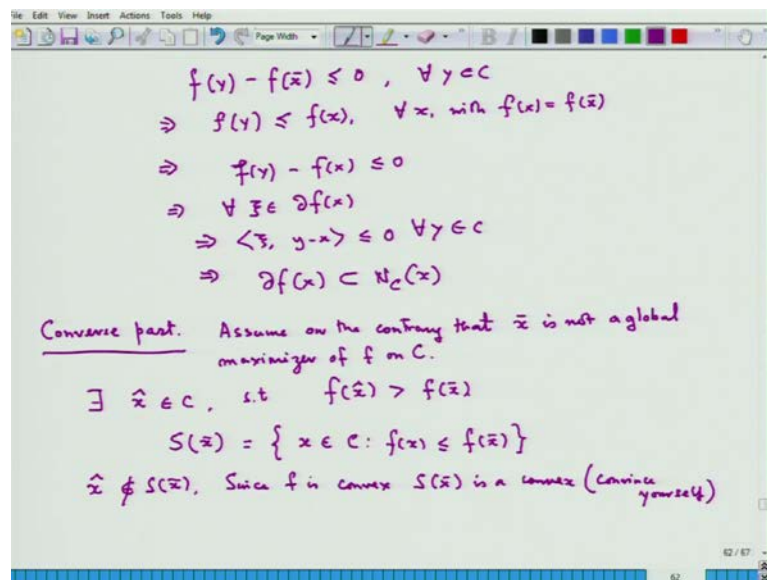 ile Edit View Insert Actions Tools Help
Page Width
f(y) - f(x̄) ≤ 0 , ∀ y ∈ C
⇒ f(y) ≤ f(x), ∀ x, with f(x) = f(x̄)
⇒ f(y) - f(x) ≤ 0
⇒ ∀ ξ ∈ ∂f(x)
⇒ <ξ, y-x> ≤ 0 ∀ y ∈ C
⇒ ∂f(x) ⊂ N_C(x)
Converse part. Assume on the contrary that x̄ is not a global
maximizer of f on C.
∃ x̂ ∈ C, s.t f(x̂) > f(x̄)
S(x̄) = { x ∈ C: f(x) ≤ f(x̄) }
x̂ ∉ S(x̄). Since f is convex S(x̄) is a convex (convince
yourself)
62 / 67
62